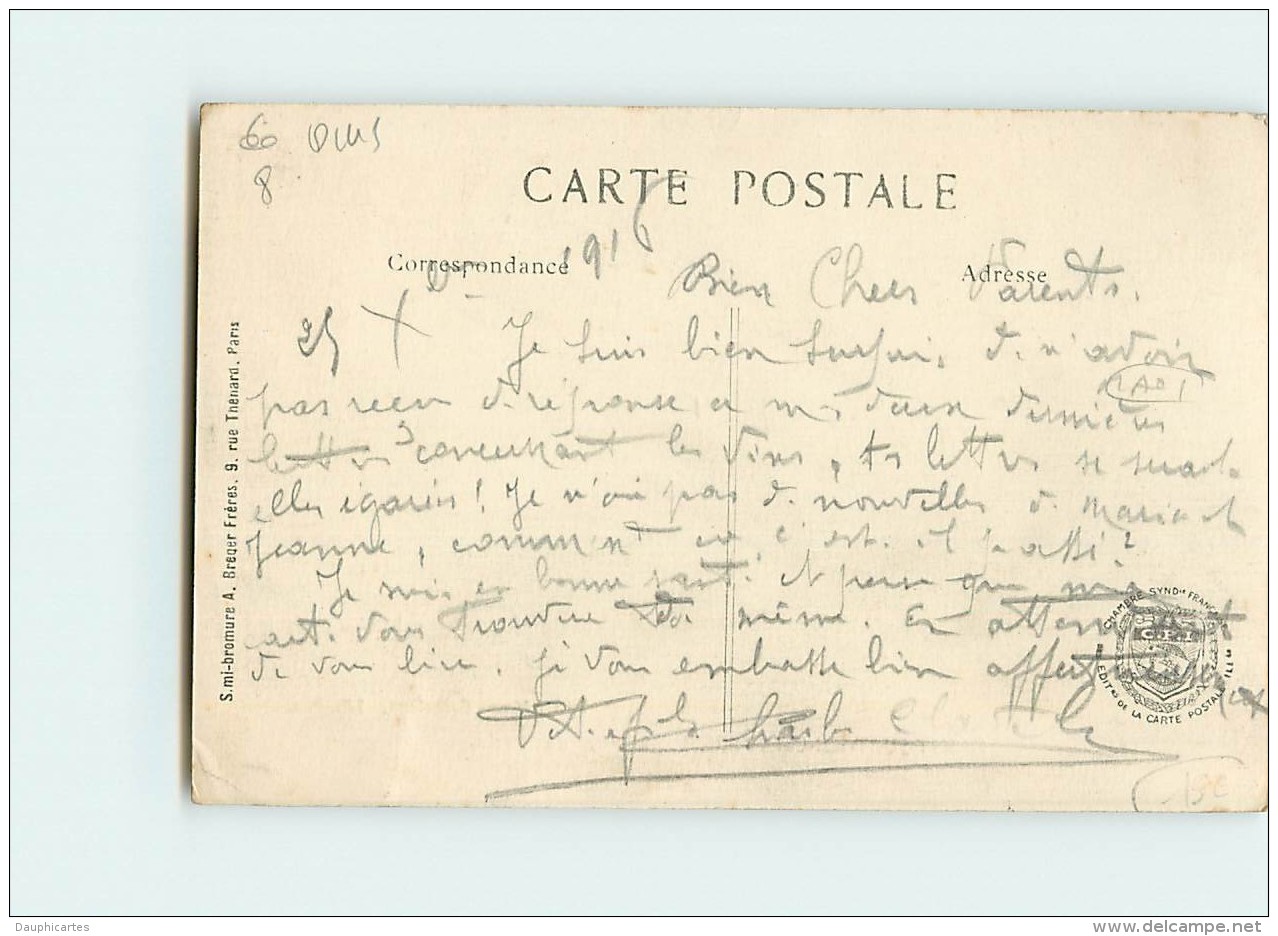 60 OMS
8
CARTE POSTALE
Correspondance
Adresse
1916
Bien Chers Parents.
25 X
Je suis bien surpris de n'avoir
pas reçu de réponse a mes deux dernières
lettres concernant les vins, les lettres se serait
elles égarées! Je n'ai pas de nouvelles de Marie et
Jeanne, comment ça c'est-il passé?
Je suis en bonne santé et pense que ma
carte vous trouvera de même. En attendant
de vous lire. Je vous embrasse bien affectueusement
Votre fils Charles
S.mi-bromure A. Breger Frères, 9, rue Thénard, Paris
CHAMBRE SYND.le FRANÇ.
C.P.I
EDIT.rs DE LA CARTE POSTALE ILL
Dauphicartes
www.delcampe.net